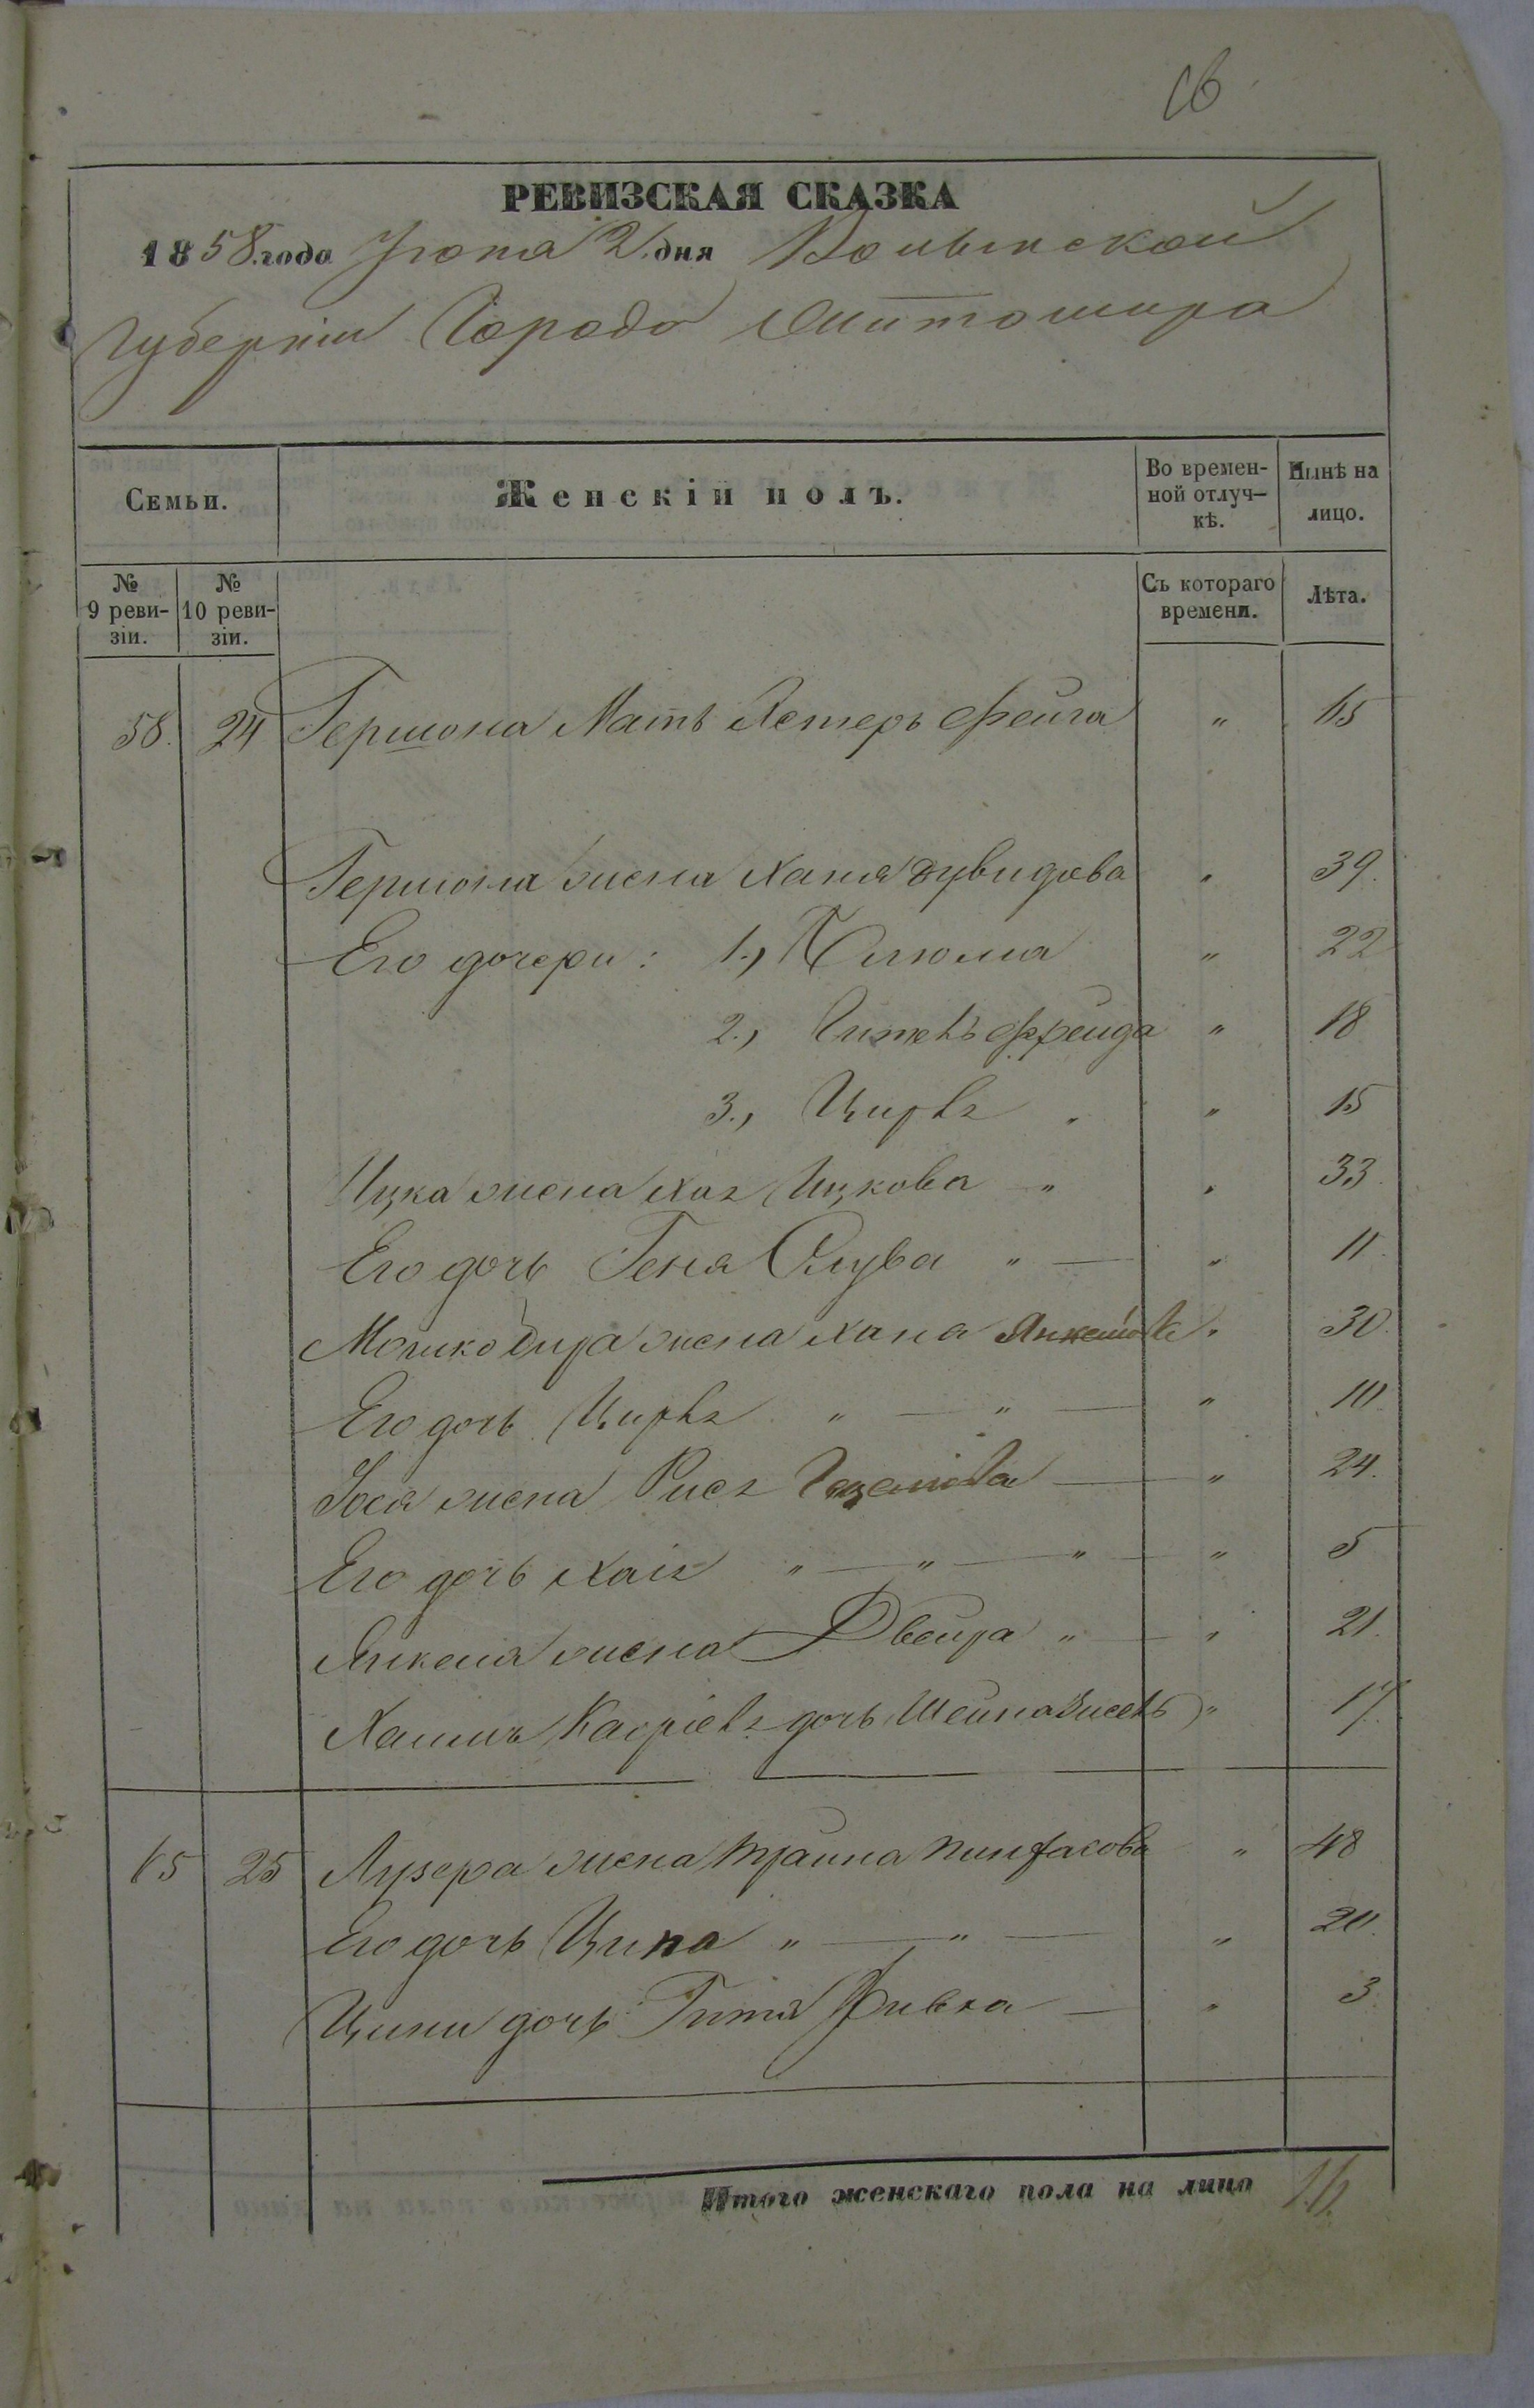 16
РЕВИЗСКАЯ СКАЗКА
1858 года Іюня 2 дня Волынской
Губерніи Города Житомира
Семьи.
Женскій полъ.
Во времен-
ной отлуч-
кѣ.
Нынѣ на
лицо.
№
9 реви-
зіи.
№
10 реви-
зіи.
Съ котораго
времени.
Лѣта.
58. 24 Гершона Мать Эстеръ Фейга " 65
Гершона жена Хана Дувидова " 39.
Его дочери: 1., Блюма " 22
2., Фрейда " 18
3., " " 15
Ицка жена Хая Ицкова " " 33.
Его дочь Геня Слува " — " 11.
Мошко жена Хана Янкелева " 30.
Его дочь " — " — " 10.
Іося жена — " 24.
Его дочь Хая " — " — " — " 5
Янкеля жена Двейра " — " 21.
Хаима дочь Шейна " 17.
65 25 Лузера жена Трайна Пинхасова " 48
Его дочь Ципа " — " — " 20.
Ципи дочь Гитя Ривка — " 3.
Итого женскаго пола на лицо 16.